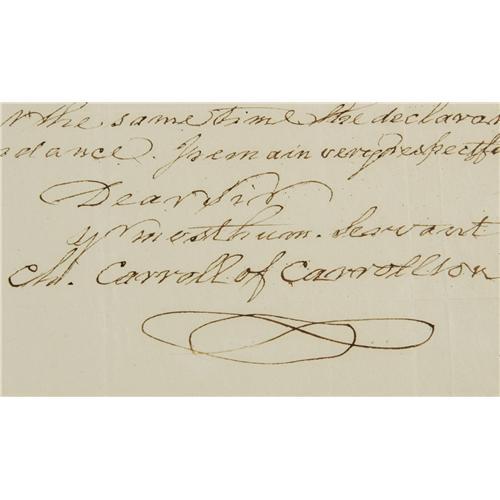 the same time the declara
dance. I remain very respectf
Dear Sir
yr most hum. Servant
Ch. Carroll of Carrollton